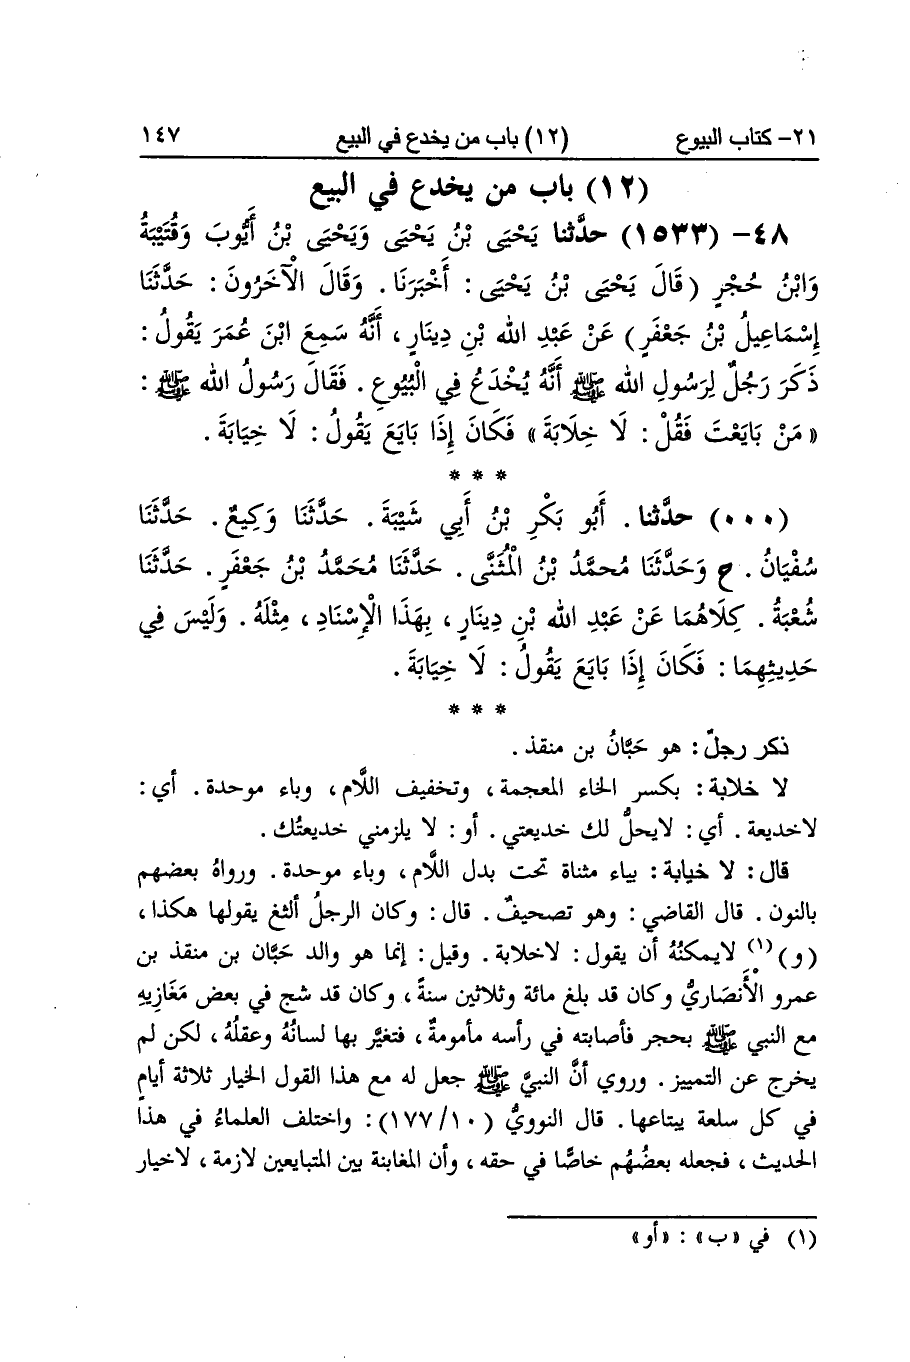 ٢١- كتاب البيوع (١٢) باب من يخدع في البيع ١٤٧
(١٢) باب من يخدع في البيع
٤٨- (١٥٣٣) حدَّثنا يَحْيَى بْنُ يَحْيَى وَيَحْيَى بْنُ أَيُّوبَ وَقُتَيْبَةُ
وَابْنُ حُجْرٍ (قَالَ يَحْيَى بْنُ يَحْيَى : أَخْبَرَنَا . وَقَالَ الْآخَرُونَ : حَدَّثَنَا
إِسْمَاعِيلُ بْنُ جَعْفَرٍ) عَنْ عَبْدِ الله بْنِ دِينَارٍ ، أَنَّهُ سَمِعَ ابْنَ عُمَرَ يَقُولُ :
ذَكَرَ رَجُلٌ لِرَسُولِ الله ﷺ أَنَّهُ يُخْدَعُ فِي الْبُيُوعِ . فَقَالَ رَسُولُ الله ﷺ :
« مَنْ بَايَعْتَ فَقُلْ : لَا خِلَابَةَ » فَكَانَ إِذَا بَايَعَ يَقُولُ : لَا خِيَابَةَ .
* * *
(٠٠٠) حدَّثنا . أَبُو بَكْرِ بْنُ أَبِي شَيْبَةَ . حَدَّثَنَا وَكِيعٌ . حَدَّثَنَا
سُفْيَانُ . ح وَحَدَّثَنَا مُحمَّدُ بْنُ الْمُثَنَّى . حَدَّثَنَا مُحَمَّدُ بْنُ جَعْفَرٍ . حَدَّثَنَا
شُعْبَةُ . كِلَاهُمَا عَنْ عَبْدِ الله بْنِ دِينَارٍ ، بِهَذَا الْإِسْنَادِ ، مِثْلَهُ . وَلَيْسَ فِي
حَدِيثِهِمَا : فَكَانَ إِذَا بَايَعَ يَقُولُ : لَا خِيَابَةَ .
* * *
ذكر رجلٌ : هو حَبَّانُ بن منقذ .
لا خلابة : بكسر الخاء المعجمة ، وتخفيف اللَّام ، وباء موحدة . أي :
لاخديعة . أي : لايحلُّ لك خديعتي . أو : لا يلزمني خديعتُك .
قال : لا خيابة : بياء مثناة تحت بدل اللَّام ، وباء موحدة . ورواهُ بعضهم
بالنون . قال القاضي : وهو تصحيفٌ . قال : وكان الرجلُ ألثغ يقولها هكذا ،
(و)(١) لايمكنُهُ أن يقول : لاخلابة . وقيل : إنما هو والد حَبَّان بن منقذ بن
عمرو الْأَنصَاريُّ وكان قد بلغ مائة وثلاثين سنةً ، وكان قد شج في بعض مَغَازِيهِ
مع النبي ﷺ بحجر فأصابته في رأسه مأمومةٌ ، فتغيَّر بها لسانُهُ وعقلُهُ ، لكن لم
يخرج عن التمييز . وروي أنَّ النبيَّ ﷺ جعل له مع هذا القول الخيار ثلاثة أيامٍ
في كل سلعة يبتاعها . قال النوويُّ (١٧٧/١٠) : واختلف العلماءُ في هذا
الحديث ، فجعله بعضُهُم خاصًّا في حقه ، وأن المغابنة بين المتبايعين لازمة ، لاخيار
(١) في «ب» : «أو»